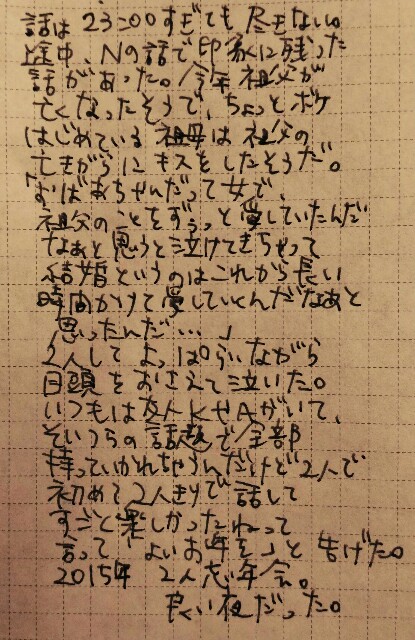 話は 23:00すぎても 尽きない。
途中、Nの話で印象に残った
話があった。今年 祖父が
亡くなったそうで、ちょっとボケ
はじめている 祖母は 祖父の
亡きがらに キスをしたそうだ。
「おばあちゃんだって女で、
祖父のことをずぅっと愛していたんだ
なあと思うと泣けてきちゃって
結婚というのはこれから長い
時間かけて愛していくんだなあと
思ったんだ…」
2人して よっぱらいながら
目頭をおさえて泣いた。
いつもは友人KやAがいて、
そいつらの話題で全部
持っていかれちゃうんだけど2人で
初めて2人きりで話して
すごと楽しかったねって
言って「よいお年を」と告げた。
2015年 2人忘年会。
良い夜だった。